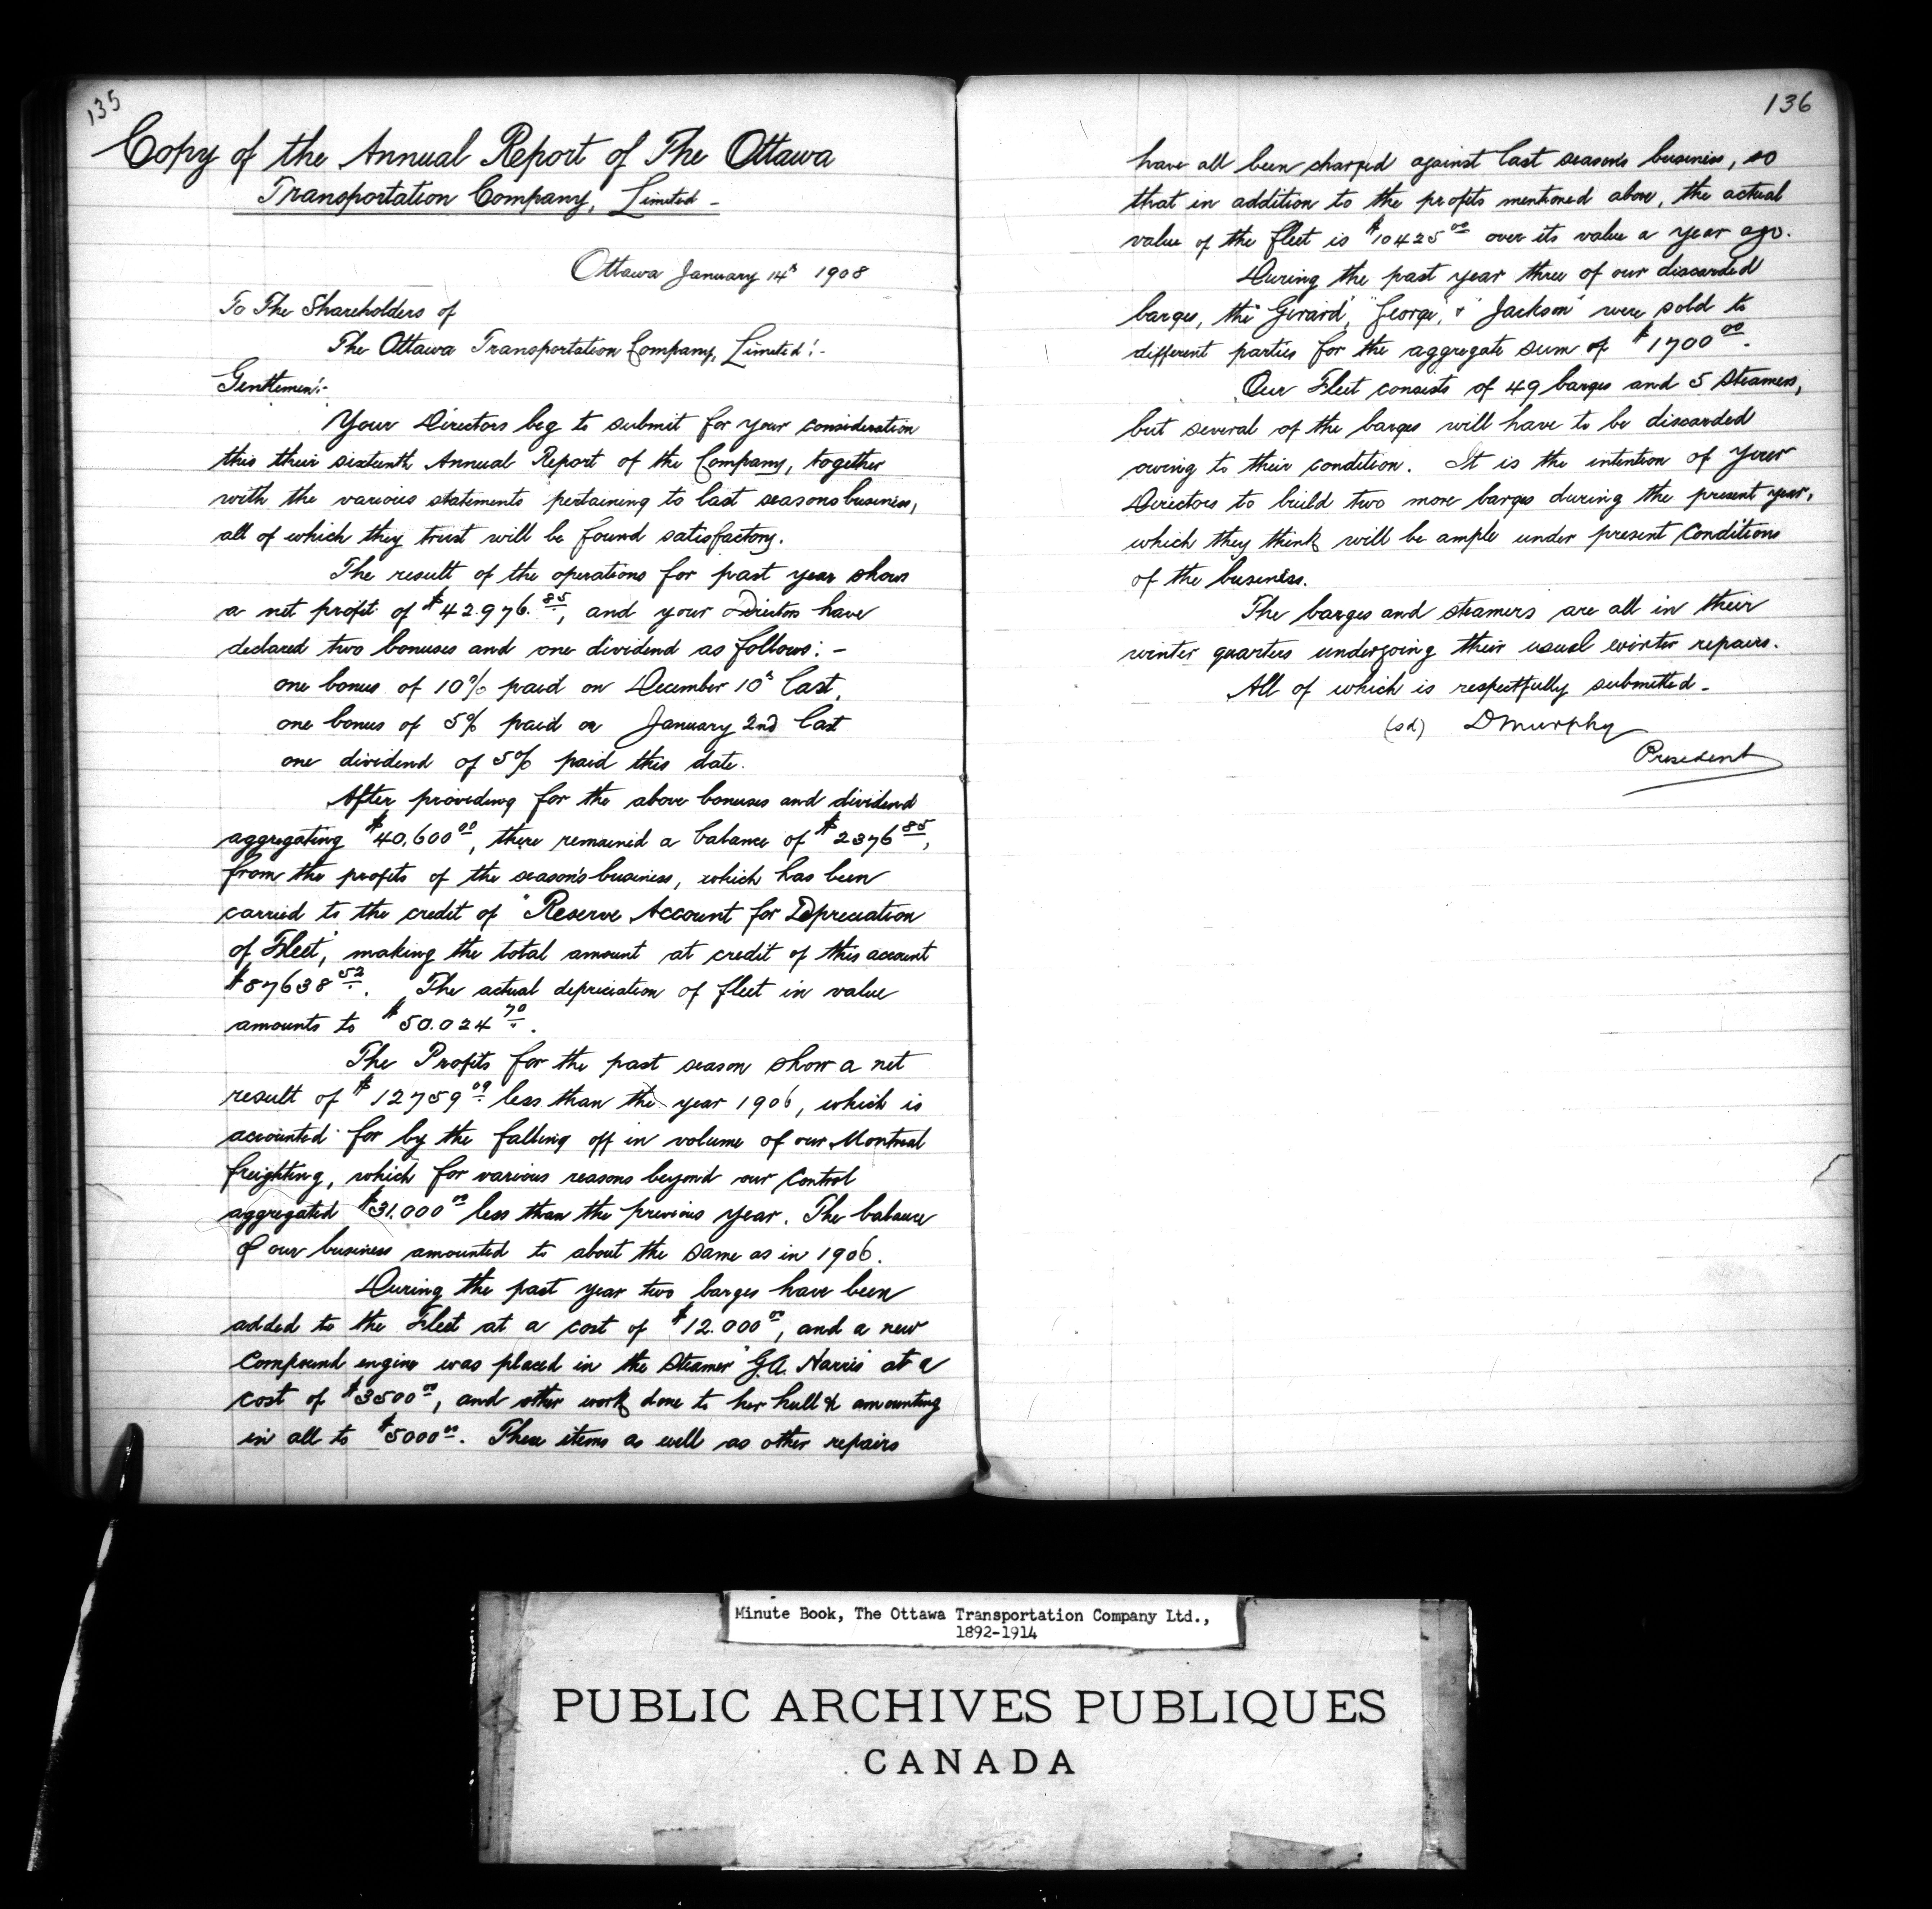 135
Copy of the Annual Report of The Ottawa
Transportation Company, Limited -
Ottawa January 14th 1908
To The Shareholders of
The Ottawa Transportation Company, Limited:-
Gentlemen:-
Your Directors beg to submit for your consideration
this their sixteenth Annual Report of the Company, together
with the various statements pertaining to last seasons business,
all of which they trust will be found satisfactory.
The result of the operations for past year shows
a net profit of $42.976.85, and your Directors have
declared two bonuses and one dividend as follows: -
one bonus of 10% paid on December 10th last,
one bonus of 5% paid on January 2nd last
one dividend of 5% paid this date.
After providing for the above bonuses and dividend
aggregating $40,600 00, there remained a balance of $2376 85,
from the profits of the season's business, which has been
carried to the credit of "Reserve Account for Depreciation
of Fleet", making the total amount at credit of this account
$87638 52. The actual depreciation of fleet in value
amounts to $50.024 70.
The Profits for the past season show a net
result of $12759 09 less than the year 1906, which is
accounted for by the falling off in volume of our Montreal
freighting, which for various reasons beyond our Control
aggregated $31.000 00 less than the previous year. The balance
of our business amounted to about the same as in 1906.
During the past year two barges have been
added to the Fleet at a cost of $12.000 00, and a new
Compound engine was placed in the Steamer "G.A. Harris" at a
cost of $3500 00, and other work done to her hull & amounting
in all to $5000 00. These items as well as other repairs
136
have all been charged against last season's business, so
that in addition to the profits mentioned above, the actual
value of the fleet is $10425 00 over its value a year ago.
During the past year three of our discarded
barges, the "Girard", "George", & "Jackson" were sold to
different parties for the aggregate sum of $1700 00.
Our Fleet consists of 49 barges and 5 Steamers,
but several of the barges will have to be discarded
owing to their condition. It is the intention of your
Directors to build two more barges during the present year,
which they think will be ample under present Conditions
of the business.
The barges and steamers are all in their
winter quarters undergoing their usual winter repairs.
All of which is respectfully submitted -
(sd) D Murphy
President
Minute Book, The Ottawa Transportation Company Ltd.,
1892-1914
PUBLIC ARCHIVES PUBLIQUES
CANADA